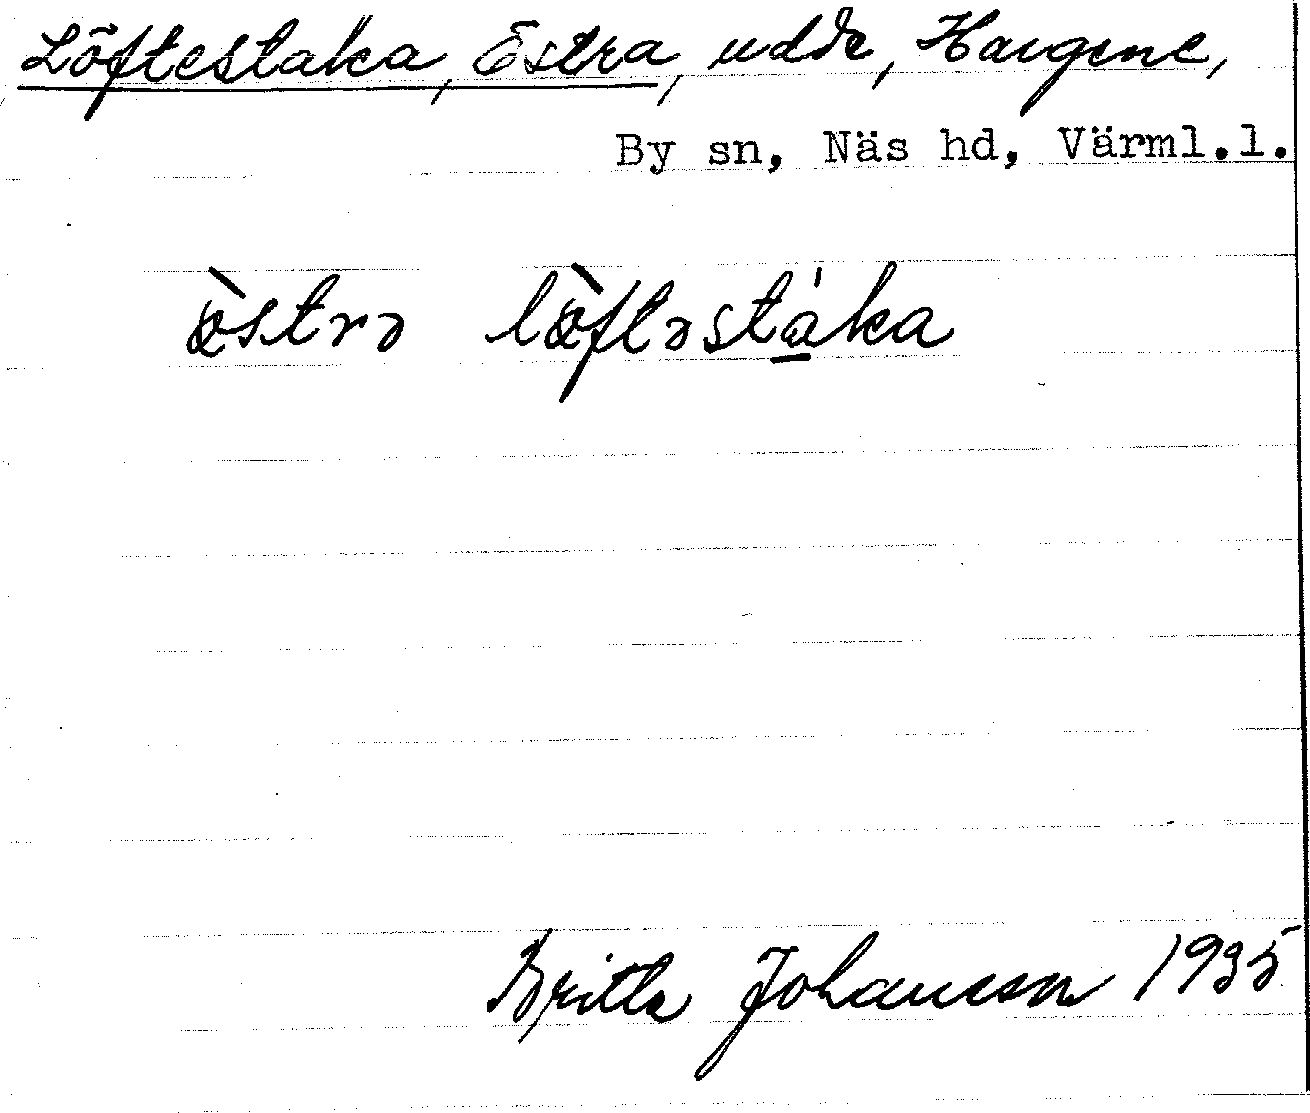 Löftestaka, Östra, udde, Hargene,
By sn, Näs hd, Värml.l.
östrə löftəstáka
Britta Johansson 1935